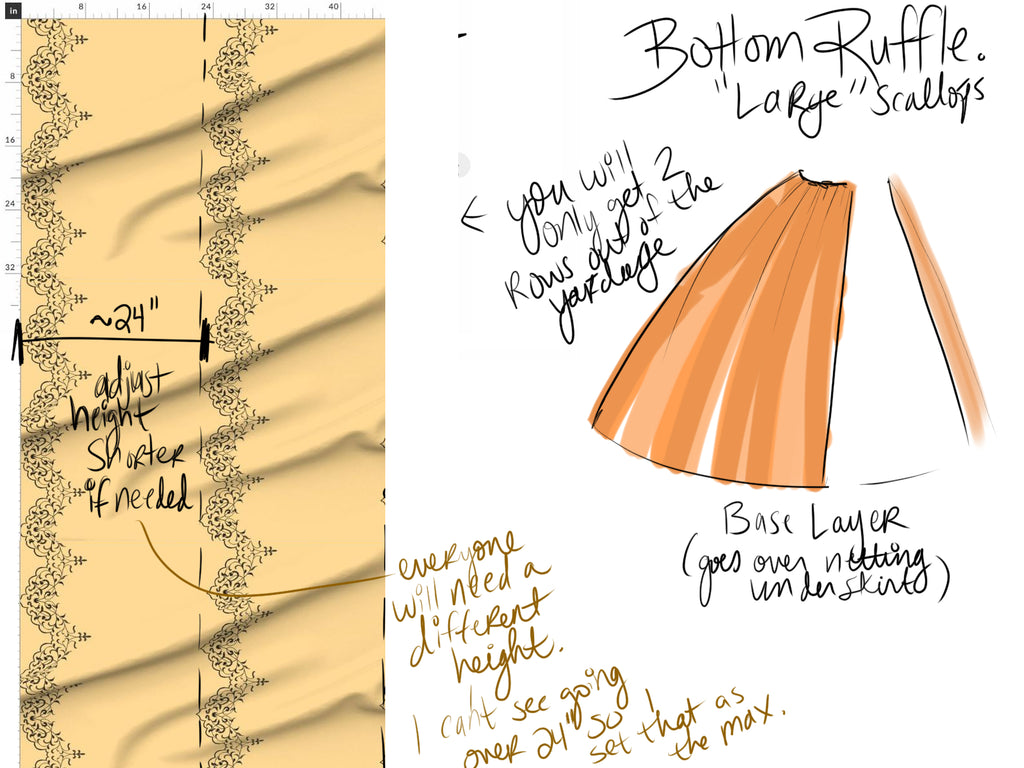 in
8 16 24 32 40
8
16
24
32
~24"
adjust
height
shorter
if needed
Bottom Ruffle.
"Large" scallops
← you will
only get 2
rows out of the
yardage
Base Layer
(goes over netting
underskirt)
everyone
will need a
different
height.
I can't see going
over 24" so I
set that as
the max.